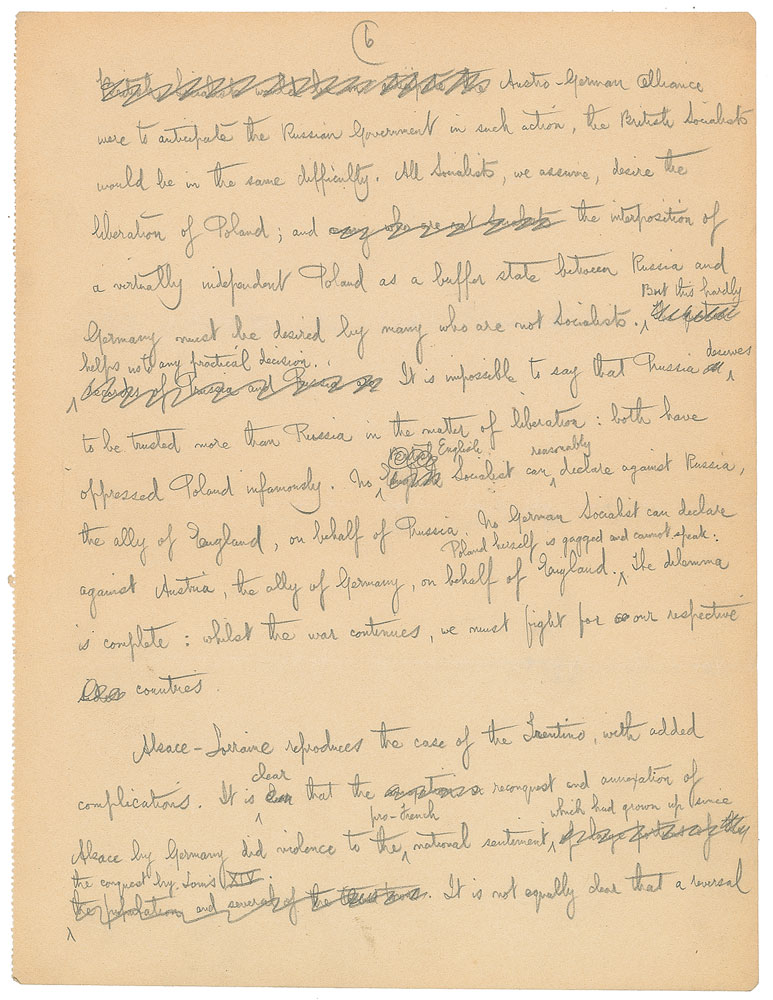 6
Austro-German Alliance
were to anticipate the Russian Government in such action, the British Socialists
would be in the same difficulty. All Socialists, we assume, desire the
liberation of Poland; and the interposition of
a virtually independent Poland as a buffer state between Russia and
But this hardly
Germany must be desired by many who are not Socialists.
helps us to any practical decision.
It is impossible to say that Prussia deserves
to be trusted more than Russia in the matter of liberation: both have
English reasonably
oppressed Poland infamously. No Socialist can declare against Russia,
the ally of England, on behalf of Prussia. No German Socialist can declare
Poland herself is gagged and cannot speak:
against Austria, the ally of Germany, on behalf of England. The dilemma
is complete: whilst the war continues, we must fight for our respective
countries.
Alsace-Lorraine reproduces the case of the Trentino, with added
clear
complications. It is that the reconquest and annexation of
pro-French which had grown up since
Alsace by Germany did violence to the national sentiment
the conquest by Louis XIV.
It is not equally clear that a reversal